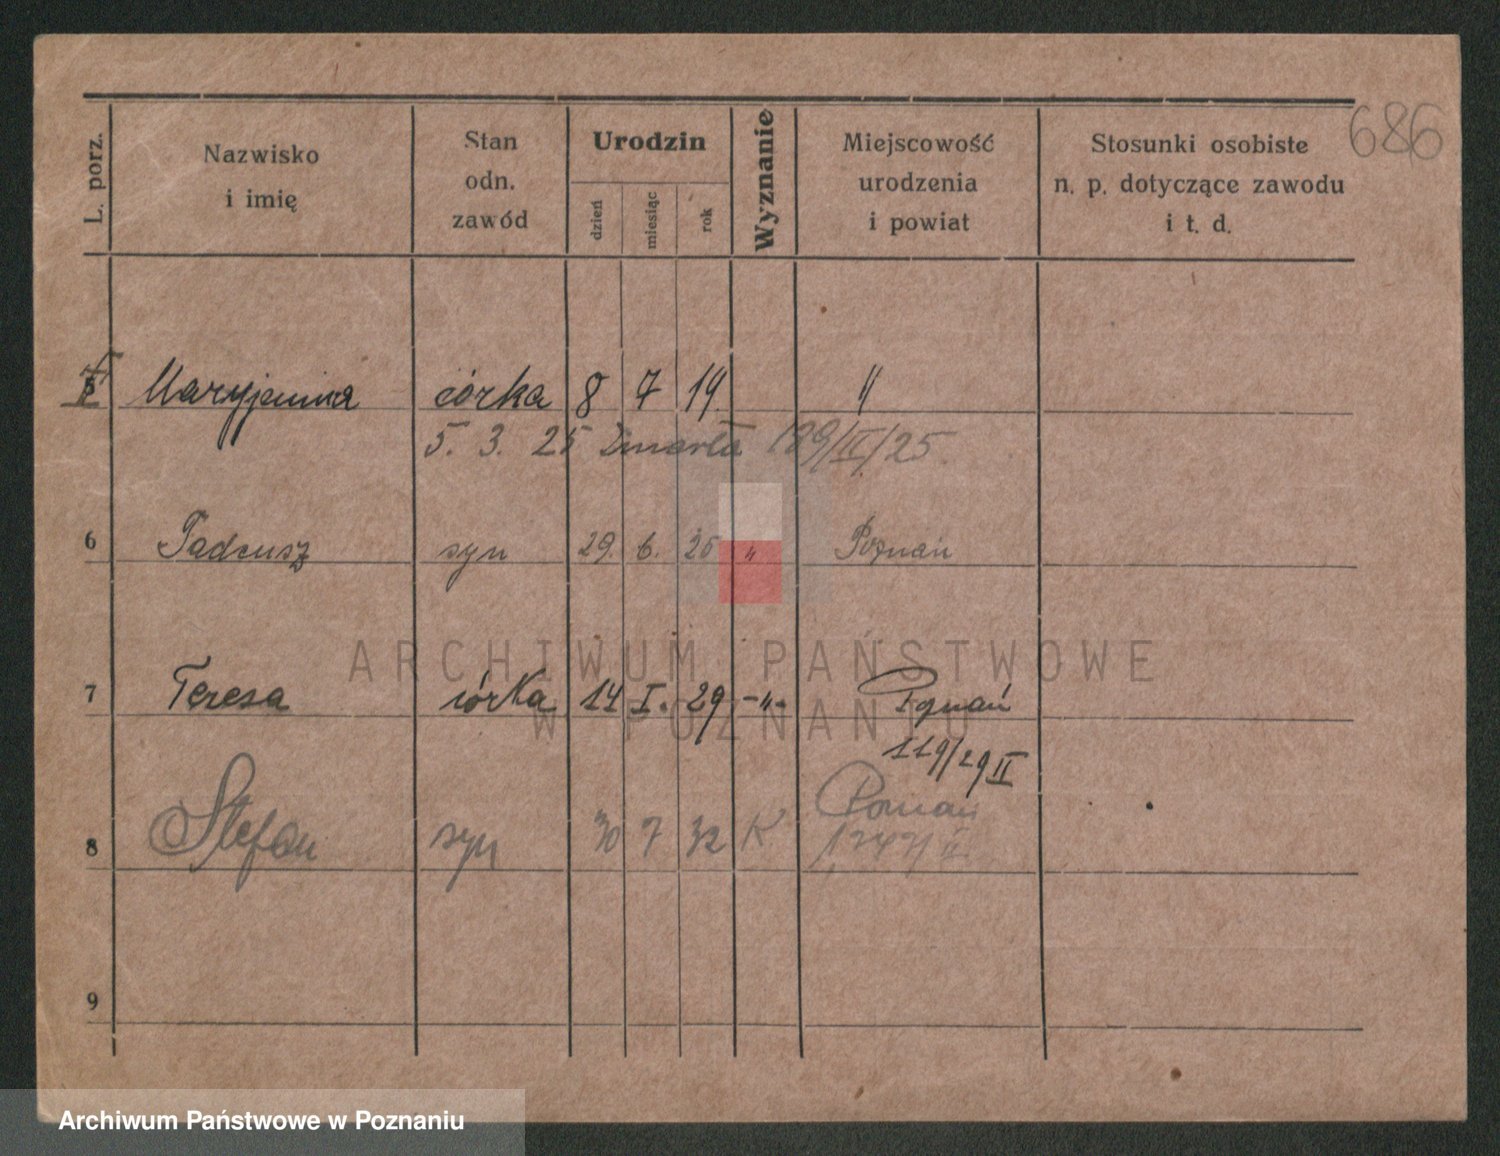 686
L. porz. Nazwisko i imię Stan odn. zawód Urodzin dzień miesiąc rok Wyznanie Miejscowość urodzenia i powiat Stosunki osobiste n. p. dotyczące zawodu i t. d.
5 Maryjanna córka 8 7 19 "
5. 3. 25 Zmarła 189/II/25
6 Tadeusz syn 29. 6. 25 " Poznań
7 Teresa córka 14 I. 29 -"- Poznań
119/29 II
8 Stefan syn 30 7 32 K Poznań
II
9
ARCHIWUM PAŃSTWOWE
W POZNANIU
Archiwum Państwowe w Poznaniu